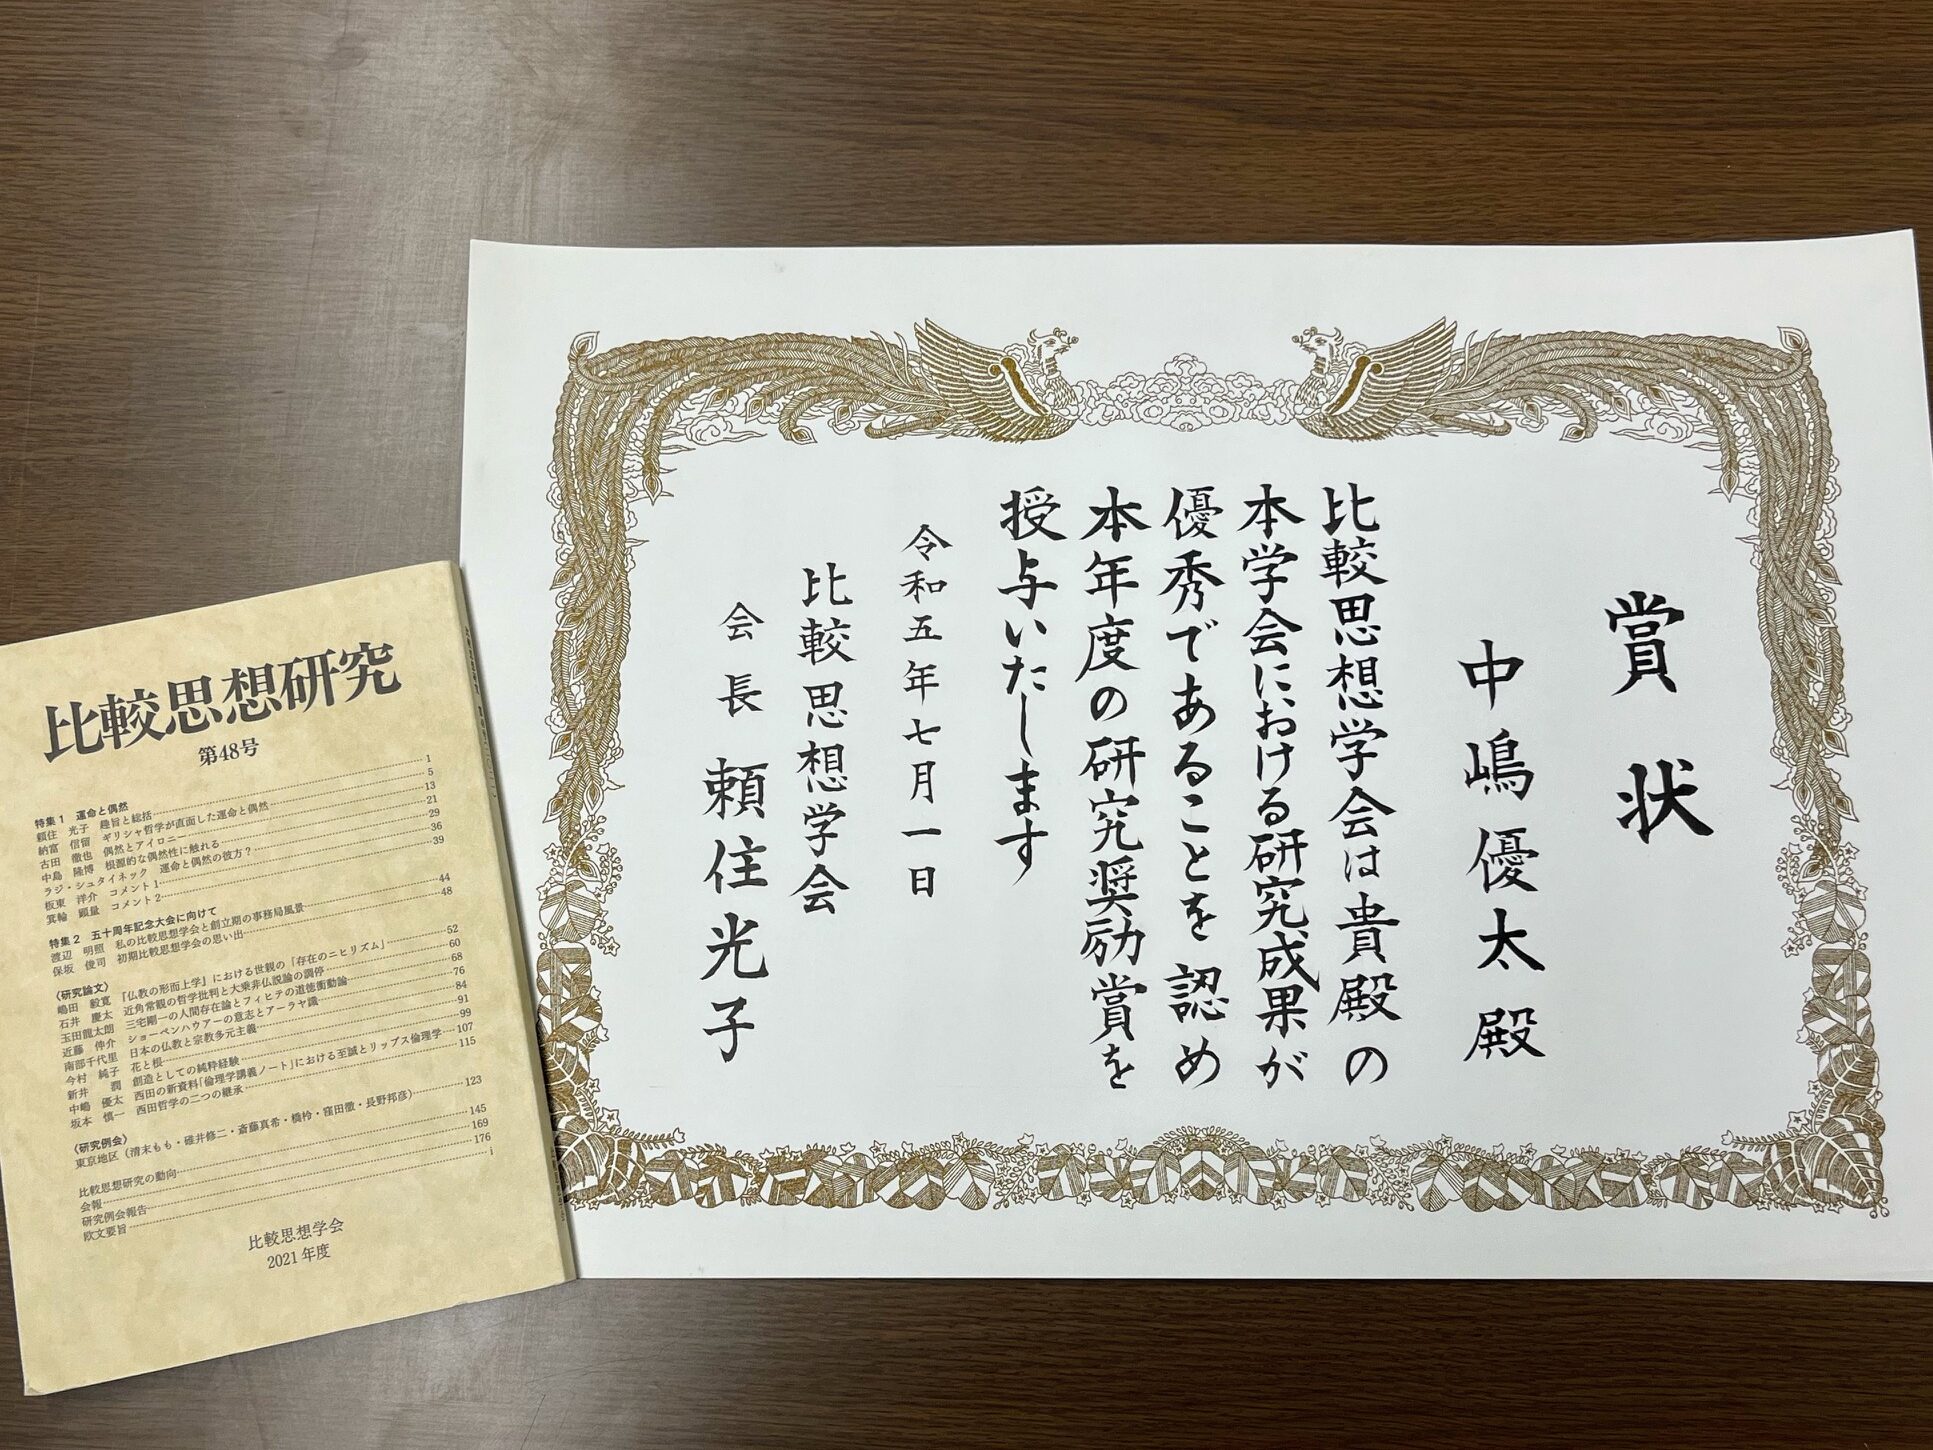 賞状
中嶋優太殿
比較思想学会は貴殿の
本学会における研究成果が
優秀であることを認め
本年度の研究奨励賞を
授与いたします
令和五年七月一日
比較思想学会
会長 頼住光子
比較思想研究
第48号
特集1 運命と偶然
頼住 光子 趣旨と総括 1
納富 信留 ギリシャ哲学が直面した運命と偶然 5
古田 徹也 偶然とアイロニー 13
中島 隆博 根源的な偶然性に触れる 21
ラジ・シュタイネック 運命と偶然の彼方? 29
板東 洋介 コメント1 36
箕輪 顕量 コメント2 39
特集2 五十周年記念大会に向けて
渡辺 明照 私の比較思想学会と創立期の事務局風景 44
保坂 俊司 初期比較思想学会の思い出 48
〈研究論文〉
嶋田 毅寛 『仏教の形而上学』における世親の「存在のニヒリズム」 52
石井 慶太 近角常観の哲学批判と大乗非仏説論の調停 60
玉田龍太朗 三宅剛一の人間存在論とフィヒテの道徳衝動論 68
近藤 伸介 ショーペンハウアーの意志とアーラヤ識 76
南部千代里 日本の仏教と宗教多元主義 84
今村 純子 花と根 91
新井 潤 創造としての純粋経験 99
中嶋 優太 西田の新資料「倫理学講義ノート」における至誠とリップス倫理学 107
坂本 慎一 西田哲学の二つの継承 115
〈研究例会〉
東京地区(清末もも・碓井修二・斎藤真希・橋柃・窪田徹・長野邦彦) 123
比較思想研究の動向 145
会報 169
研究例会報告 176
欧文要旨 i
比較思想学会
2021年度